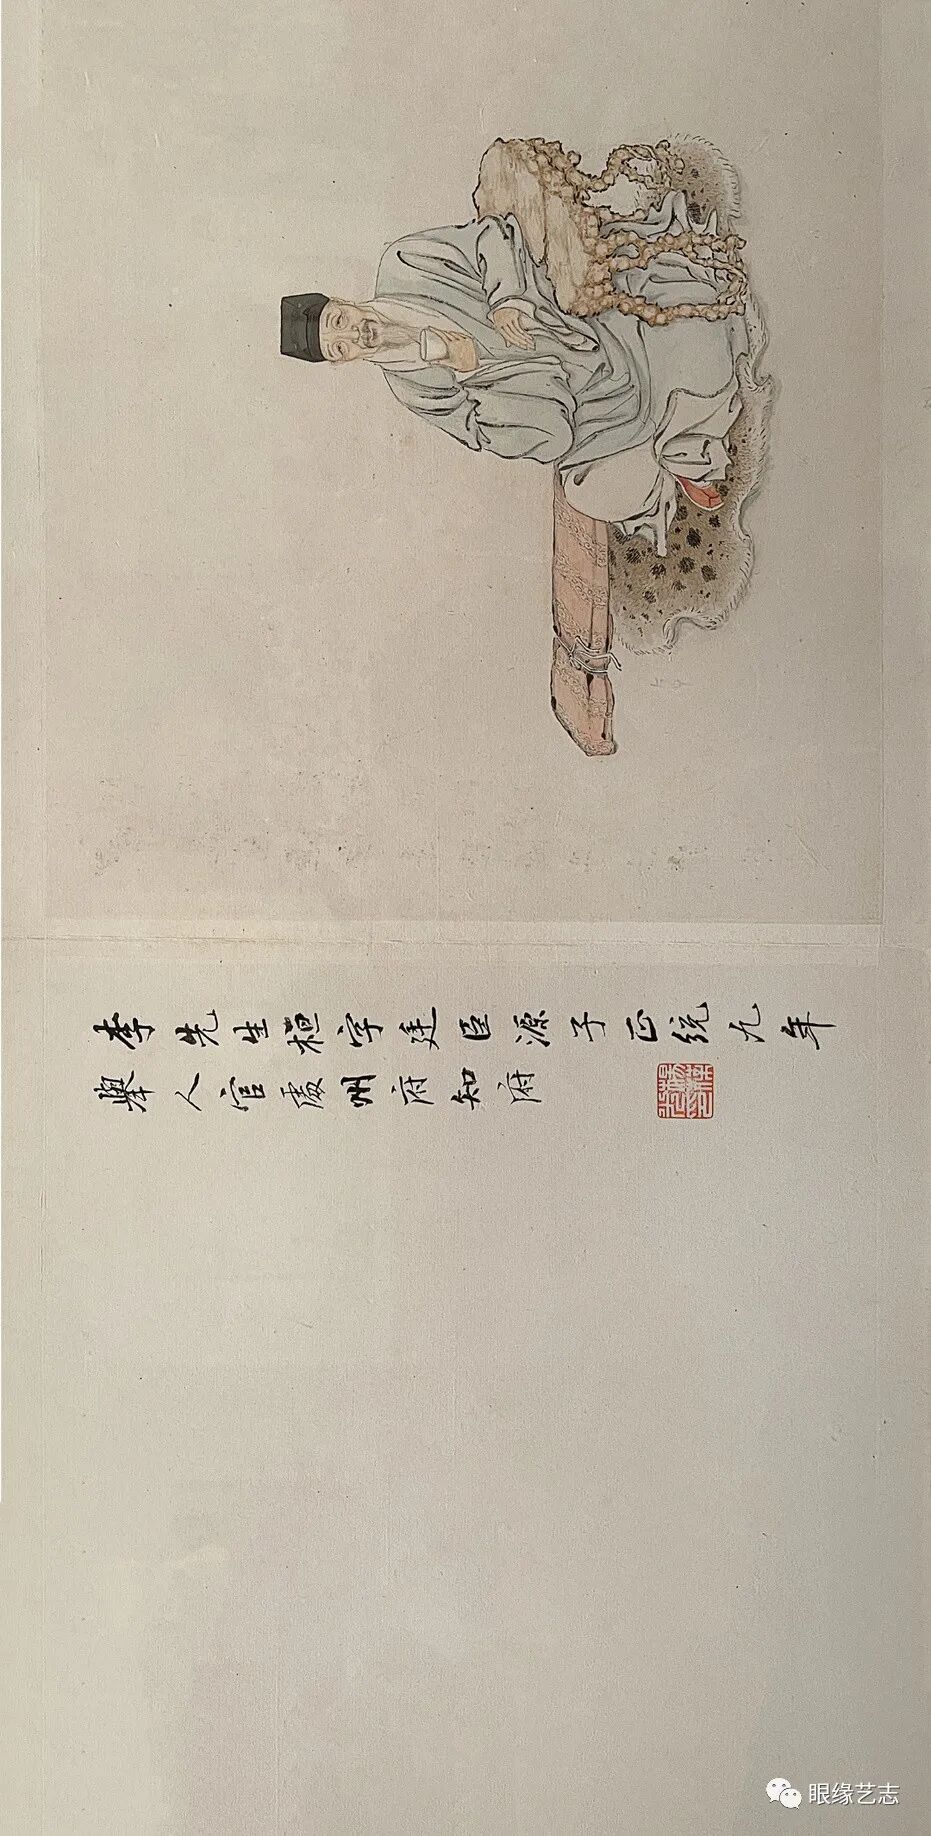 李先生桓字廷臣源子正統九年
舉人官處州府知府
眼缘艺志